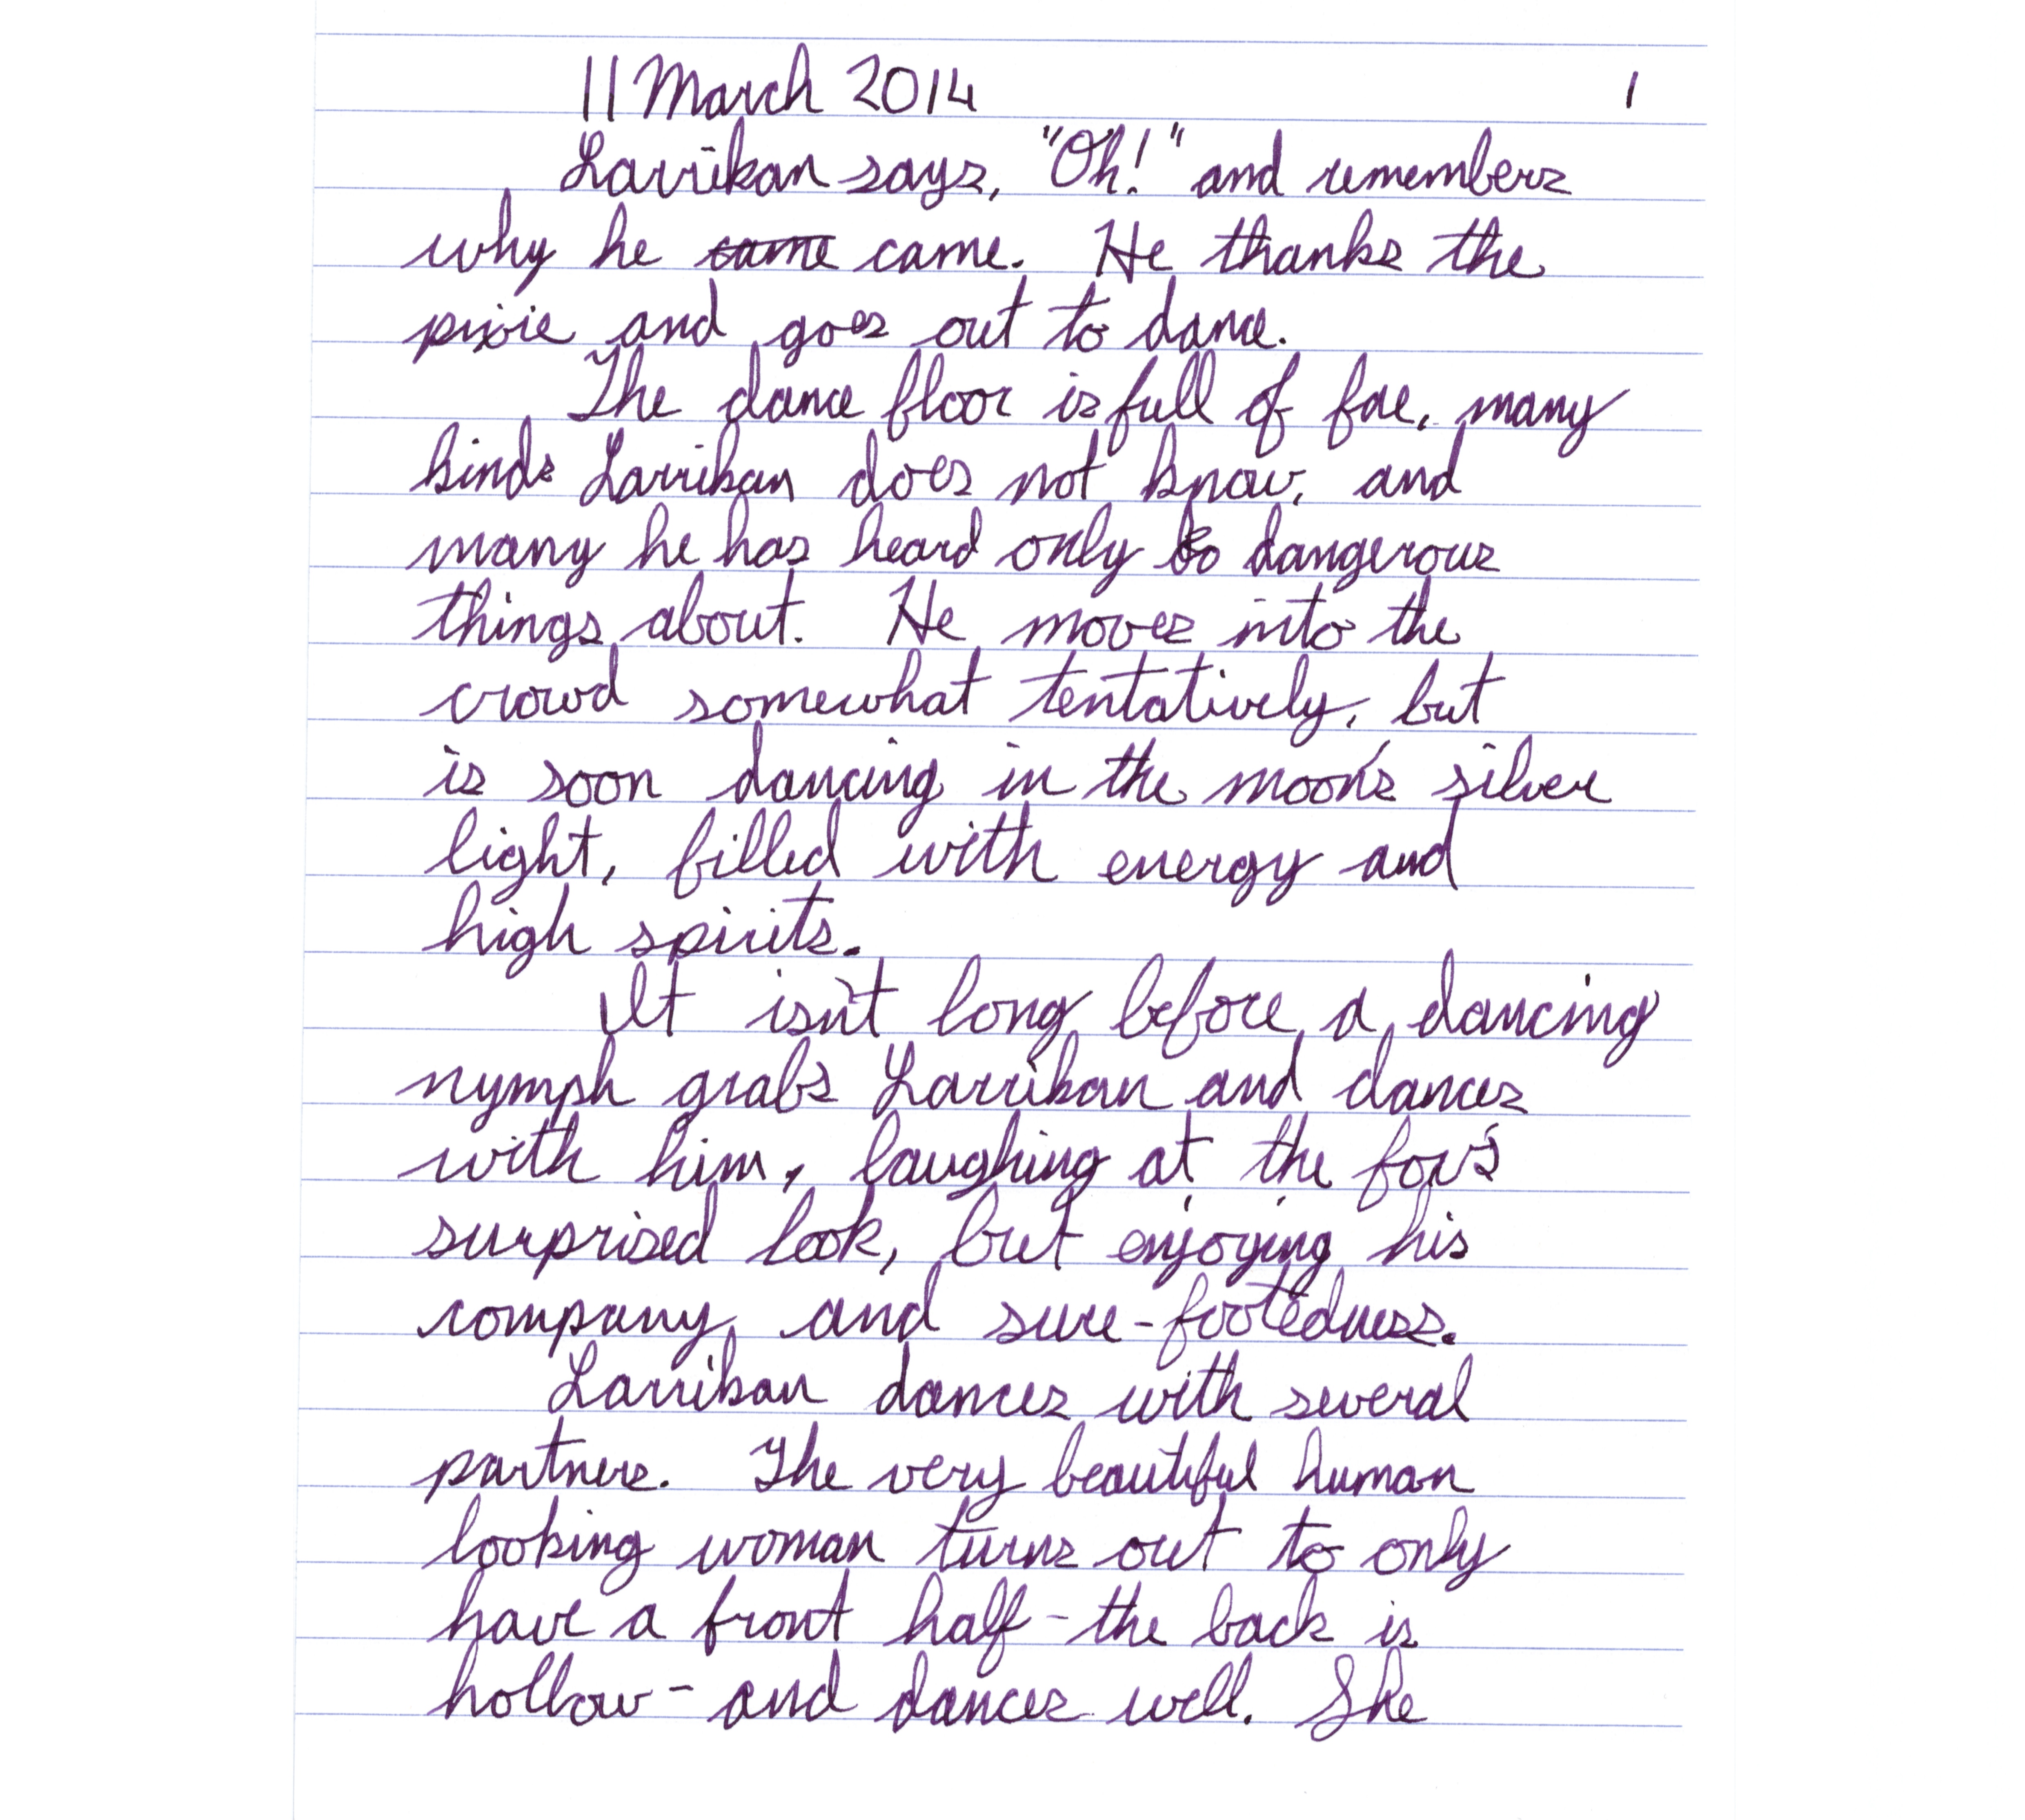 11 March 2014 1
Larrikan says, "Oh!" and remembers
why he ~~came~~ came. He thanks the
pixie and goes out to dance.
The dance floor is full of fae, many
kinds Larrikan does not know, and
many he has heard only dangerous
things about. He moves into the
crowd somewhat tentatively, but
is soon dancing in the moon's silver
light, filled with energy and
high spirits.
It isn't long before a dancing
nymph grabs Larrikan and dances
with him, laughing at the fox's
surprised look, but enjoying his
company and sure-footedness.
Larrikan dances with several
partners. The very beautiful human
looking woman turns out to only
have a front half - the back is
hollow - and dances well. She